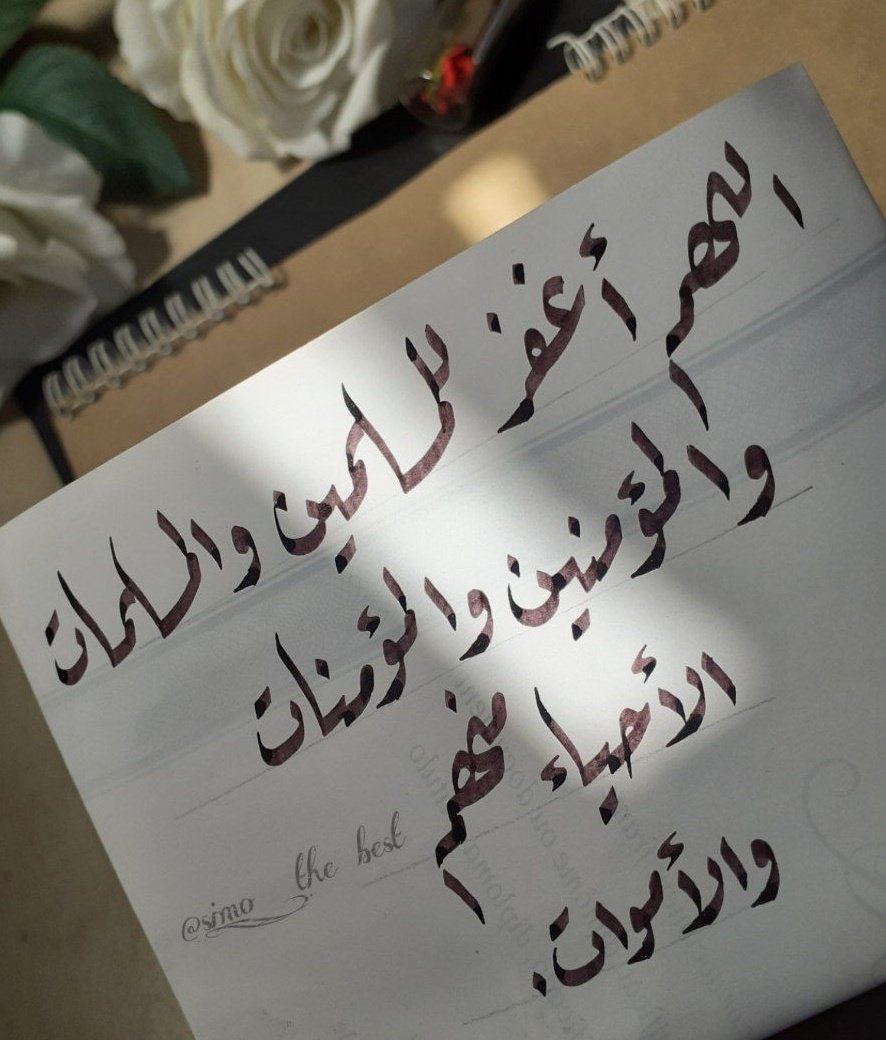 اللهم أغفر للمسلمين والمسلمات
والمؤمنين والمؤمنات
الأحياء منهم
والأموات.
@simo the best